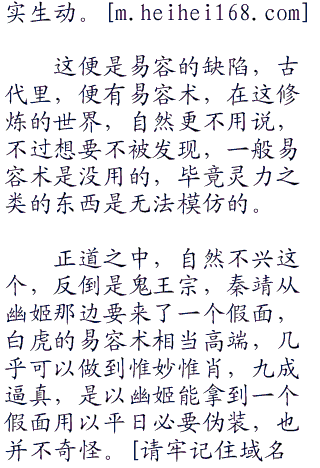 实生动。[m.heihei168.com]
这便是易容的缺陷，古
代里，便有易容术，在这修
炼的世界，自然更不用说，
不过想要不被发现，一般易
容术是没用的，毕竟灵力之
类的东西是无法模仿的。
正道之中，自然不兴这
个，反倒是鬼王宗，秦靖从
幽姬那边要来了一个假面，
白虎的易容术相当高端，几
乎可以做到惟妙惟肖，九成
逼真，是以幽姬能拿到一个
假面用以平日必要伪装，也
并不奇怪。[请牢记住域名